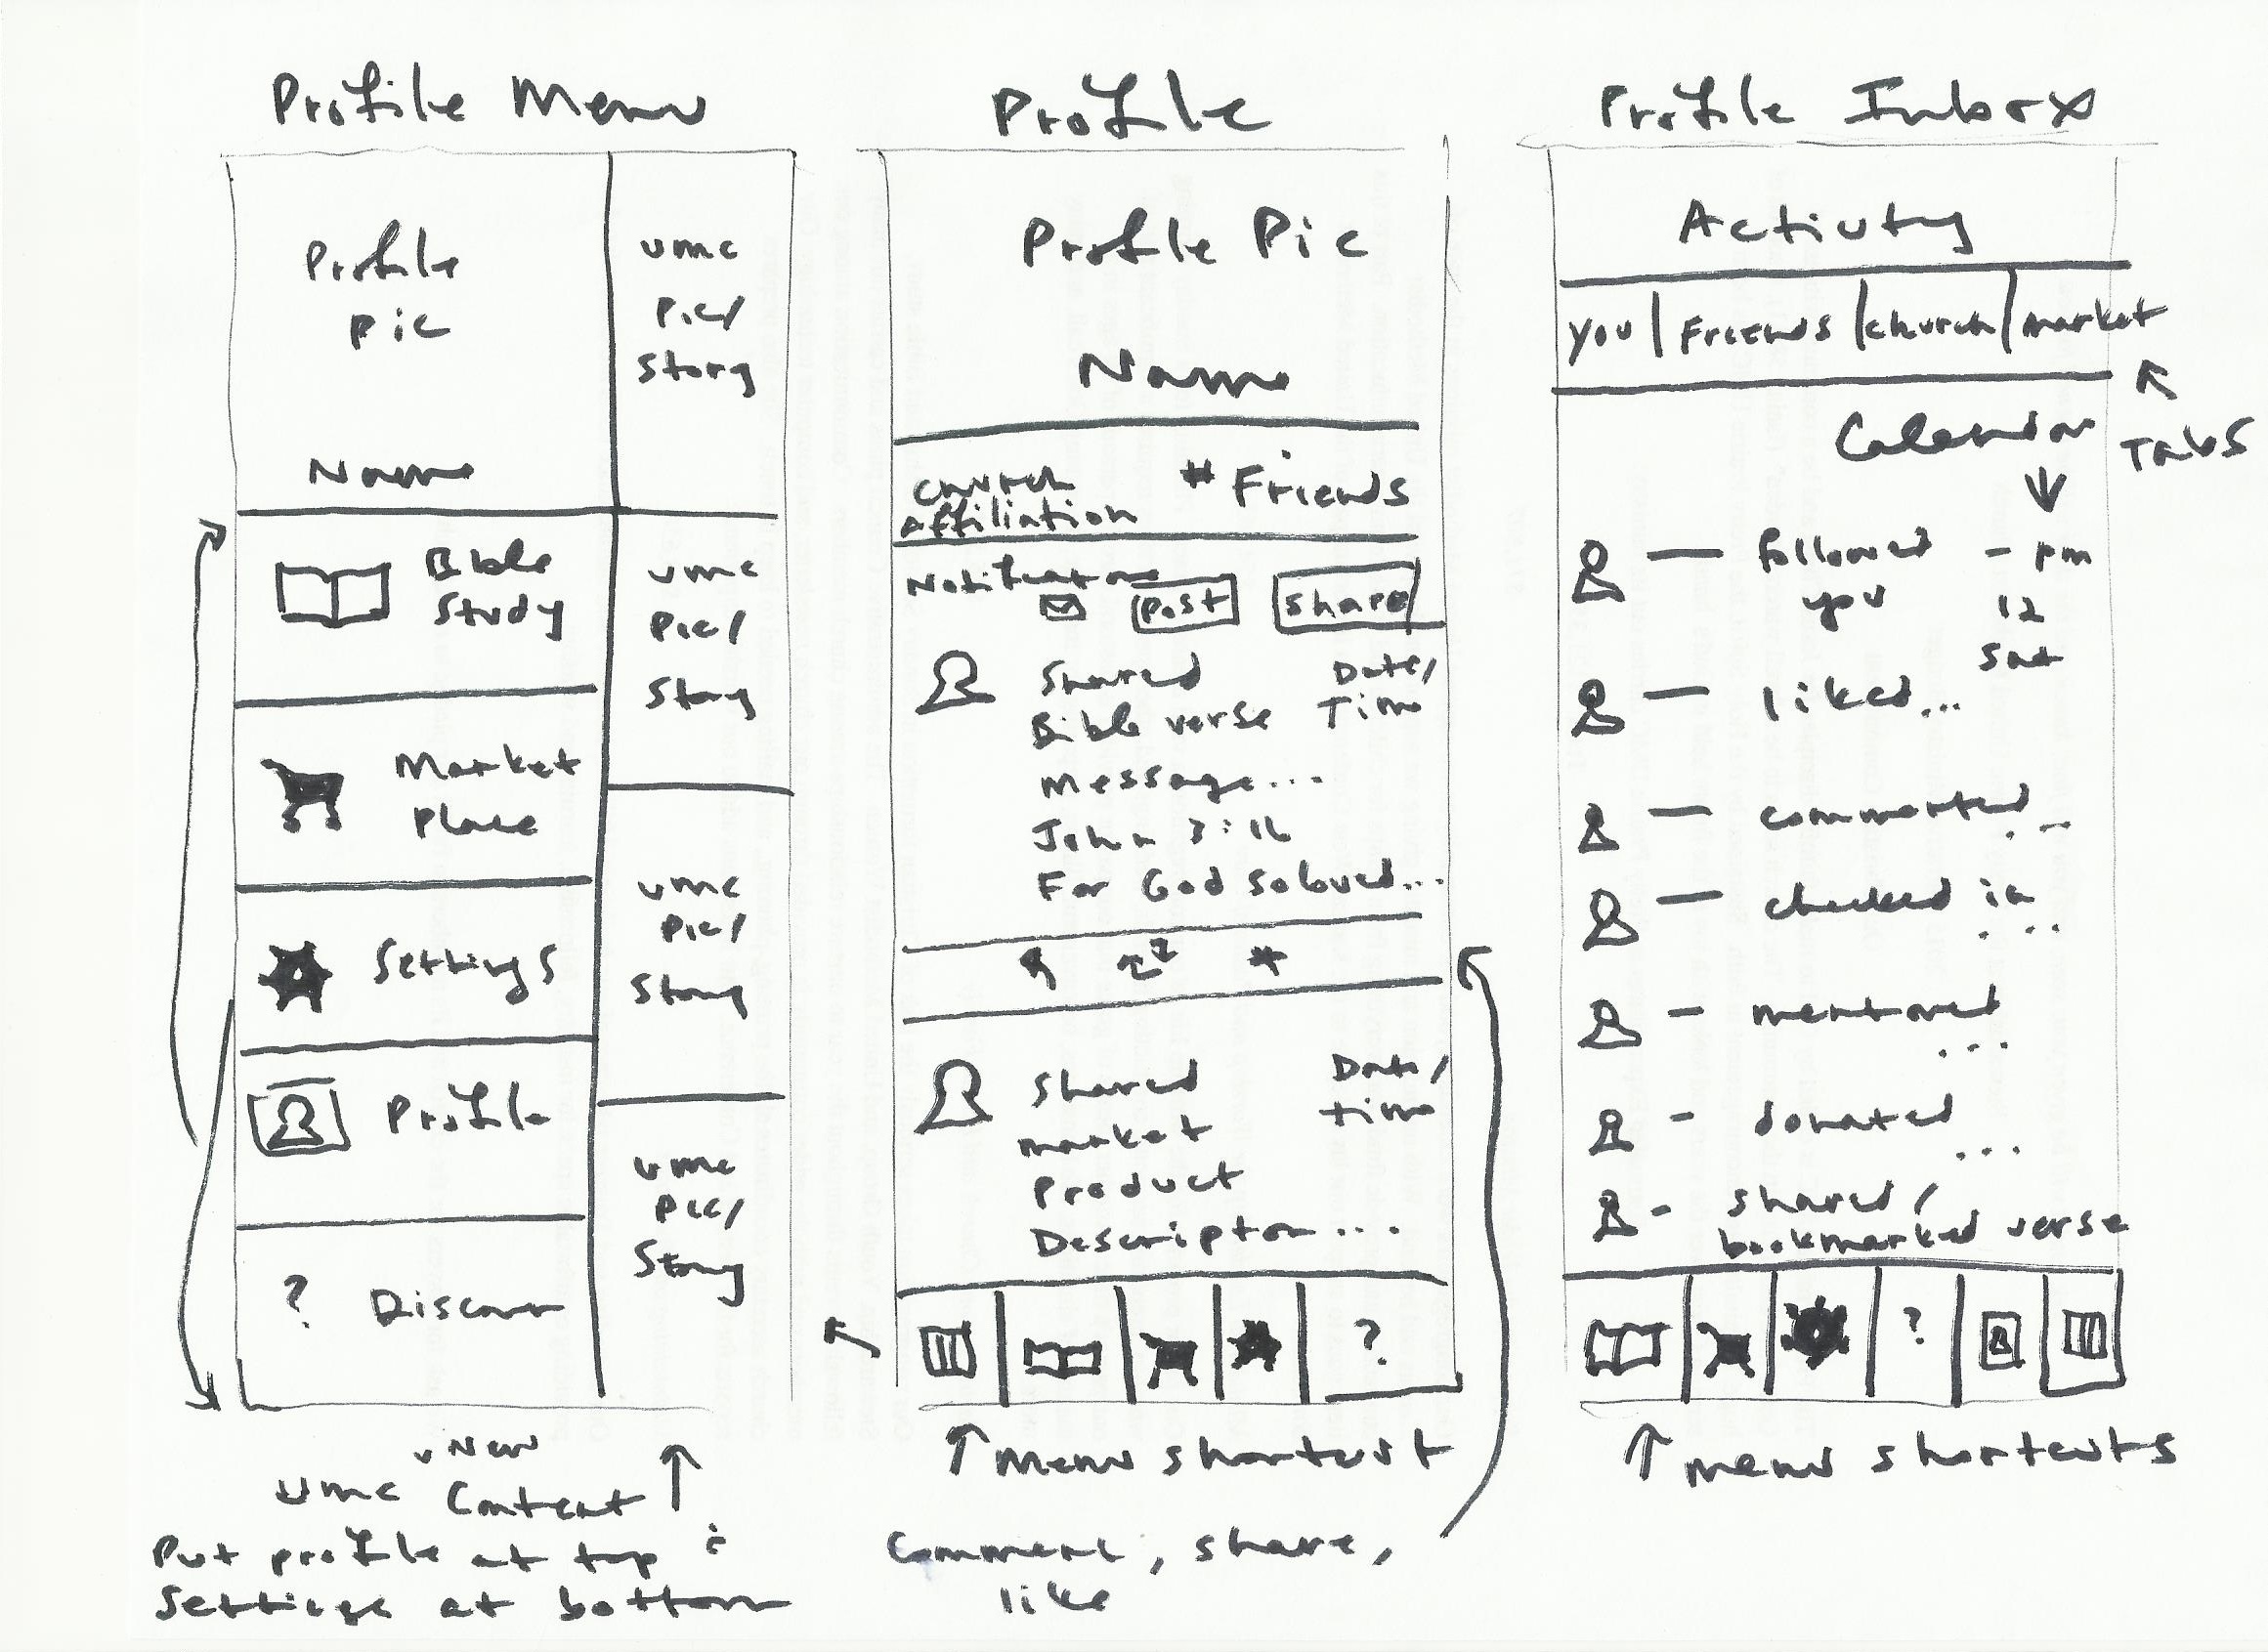 Profile Menu
Profile
pic
Name
Bible
Study
Market
place
Settings
Profile
? Discover
umc
pic/
story
umc
pic/
story
umc
pic/
story
umc
pic/
story
New
umc Content ↑
Put profile at top &
settings at bottom
Profile
Profile Pic
Name
church
affiliation
# Friends
Notifications
post
share
Shared
Bible verse
message...
John 3:16
For God so loved...
Date/
Time
Shared
market
product
Description...
Date/
time
?
↑ menu shortcut
Comment, share,
like
Profile Inbox
Activity
you | Friends | church | market
Tabs
Calendar
— followed
you
- pm
12
Sat
— liked...
— commented
...
— checked in
...
— mentioned
...
- donated
...
- shared/
bookmarked verse
?
↑ menu shortcuts